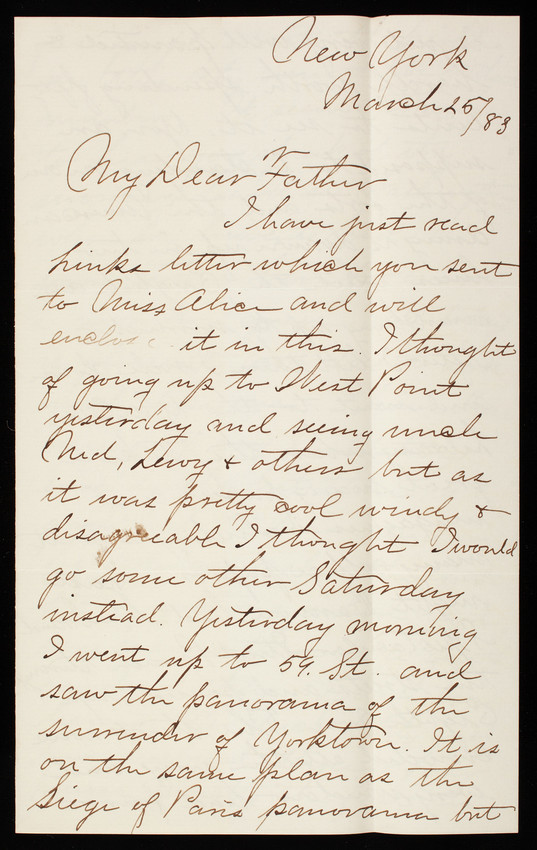 New York
March 25/83
My Dear Father
I have just read
Links letter which you sent
to Miss Alice and will
enclose it in this. I thought
of going up to West Point
yesterday and seeing uncle
Ned, Levy & others but as
it was pretty cool windy &
disagreeable I thought I would
go some other Saturday
instead. Yesterday morning
I went up to 59. St. and
saw the panorama of the
surrender of Yorktown. It is
on the same plan as the
Siege of Paris panorama but